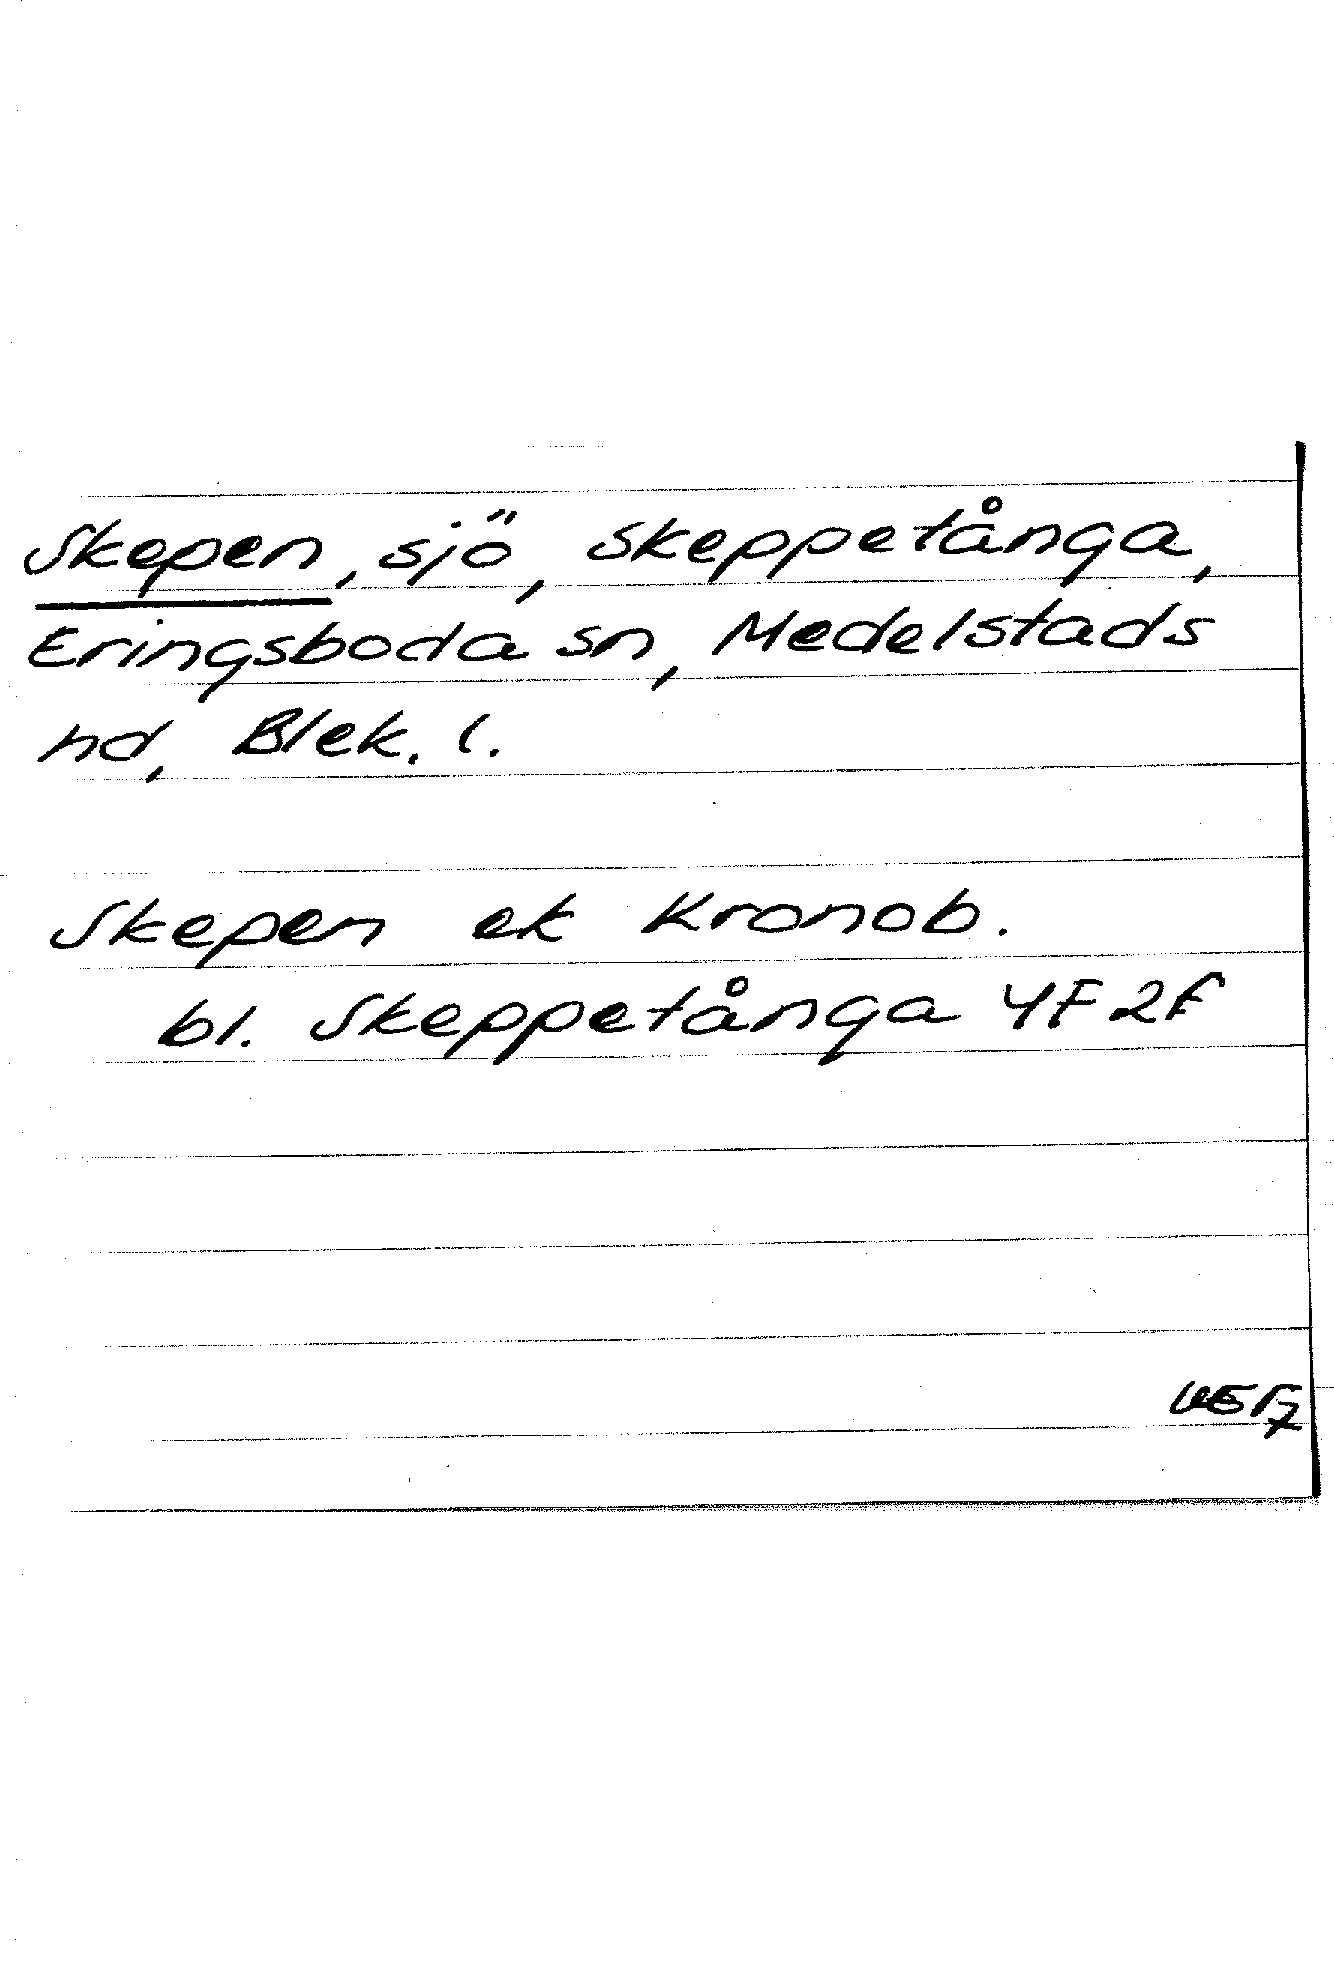 Skepen, sjö, Skeppetånga,
Eringsboda sn, Medelstads
hd, Blek. l.
Skepen ek Kronob.
bl. Skeppetånga 4F 2f